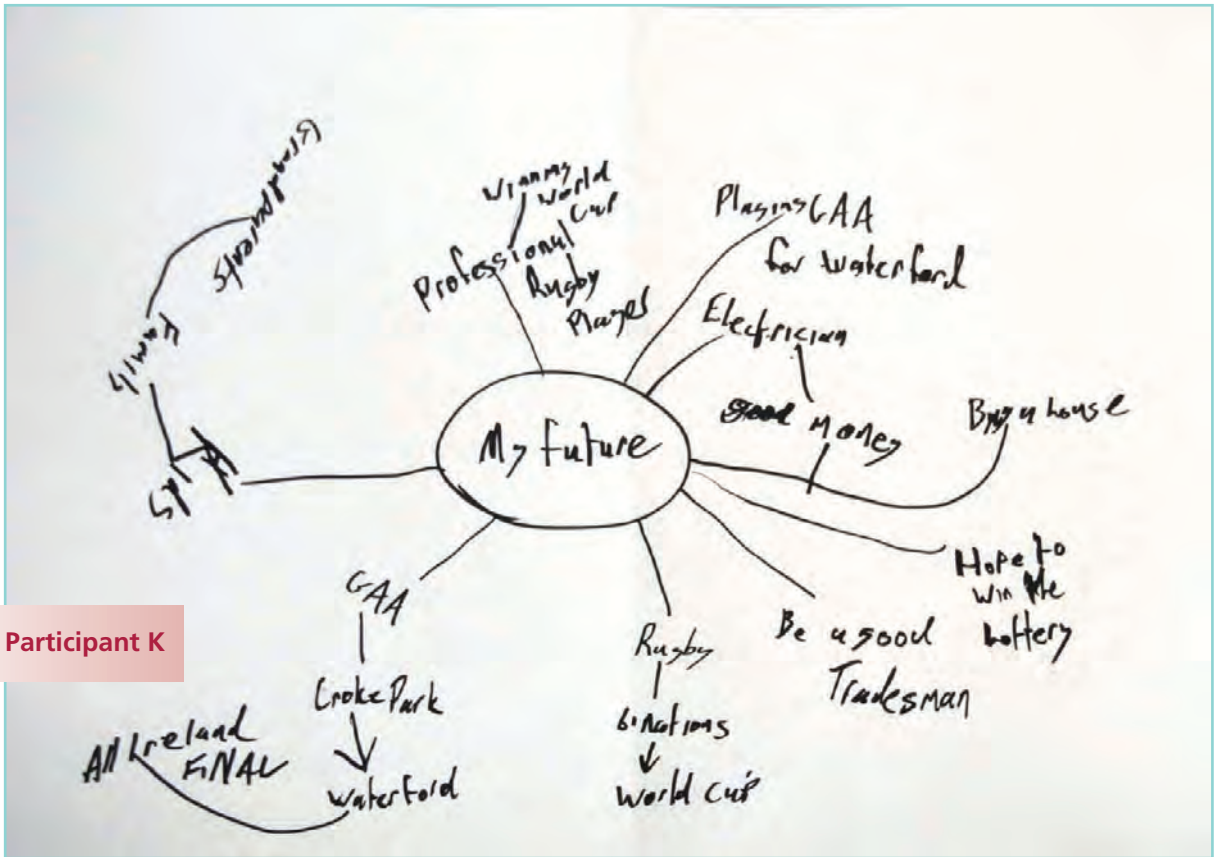 My future
Winning
World
Cup
Professional
Rugby
Player
Playing GAA
for Waterford
Electrician
Good Money
Buy a house
Hope to
win the
Lottery
Be a good
Tradesman
Rugby
6 nations
World Cup
GAA
Croke Park
Waterford
All Ireland
FINAL
Kids
Family
Grandparents
Participant K